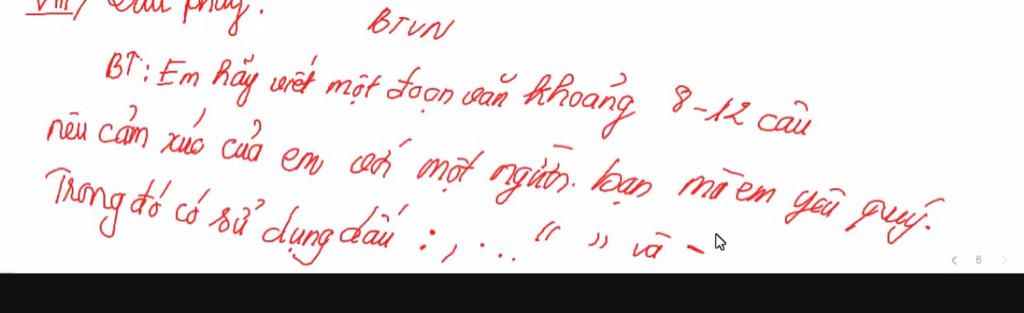 VIII/ Dấu phẩy.
BTVN
BT: Em hãy viết một đoạn văn khoảng 8-12 câu
nêu cảm xúc của em với một người bạn mà em yêu quý.
Trong đó có sử dụng dấu : , ... " " và -
6